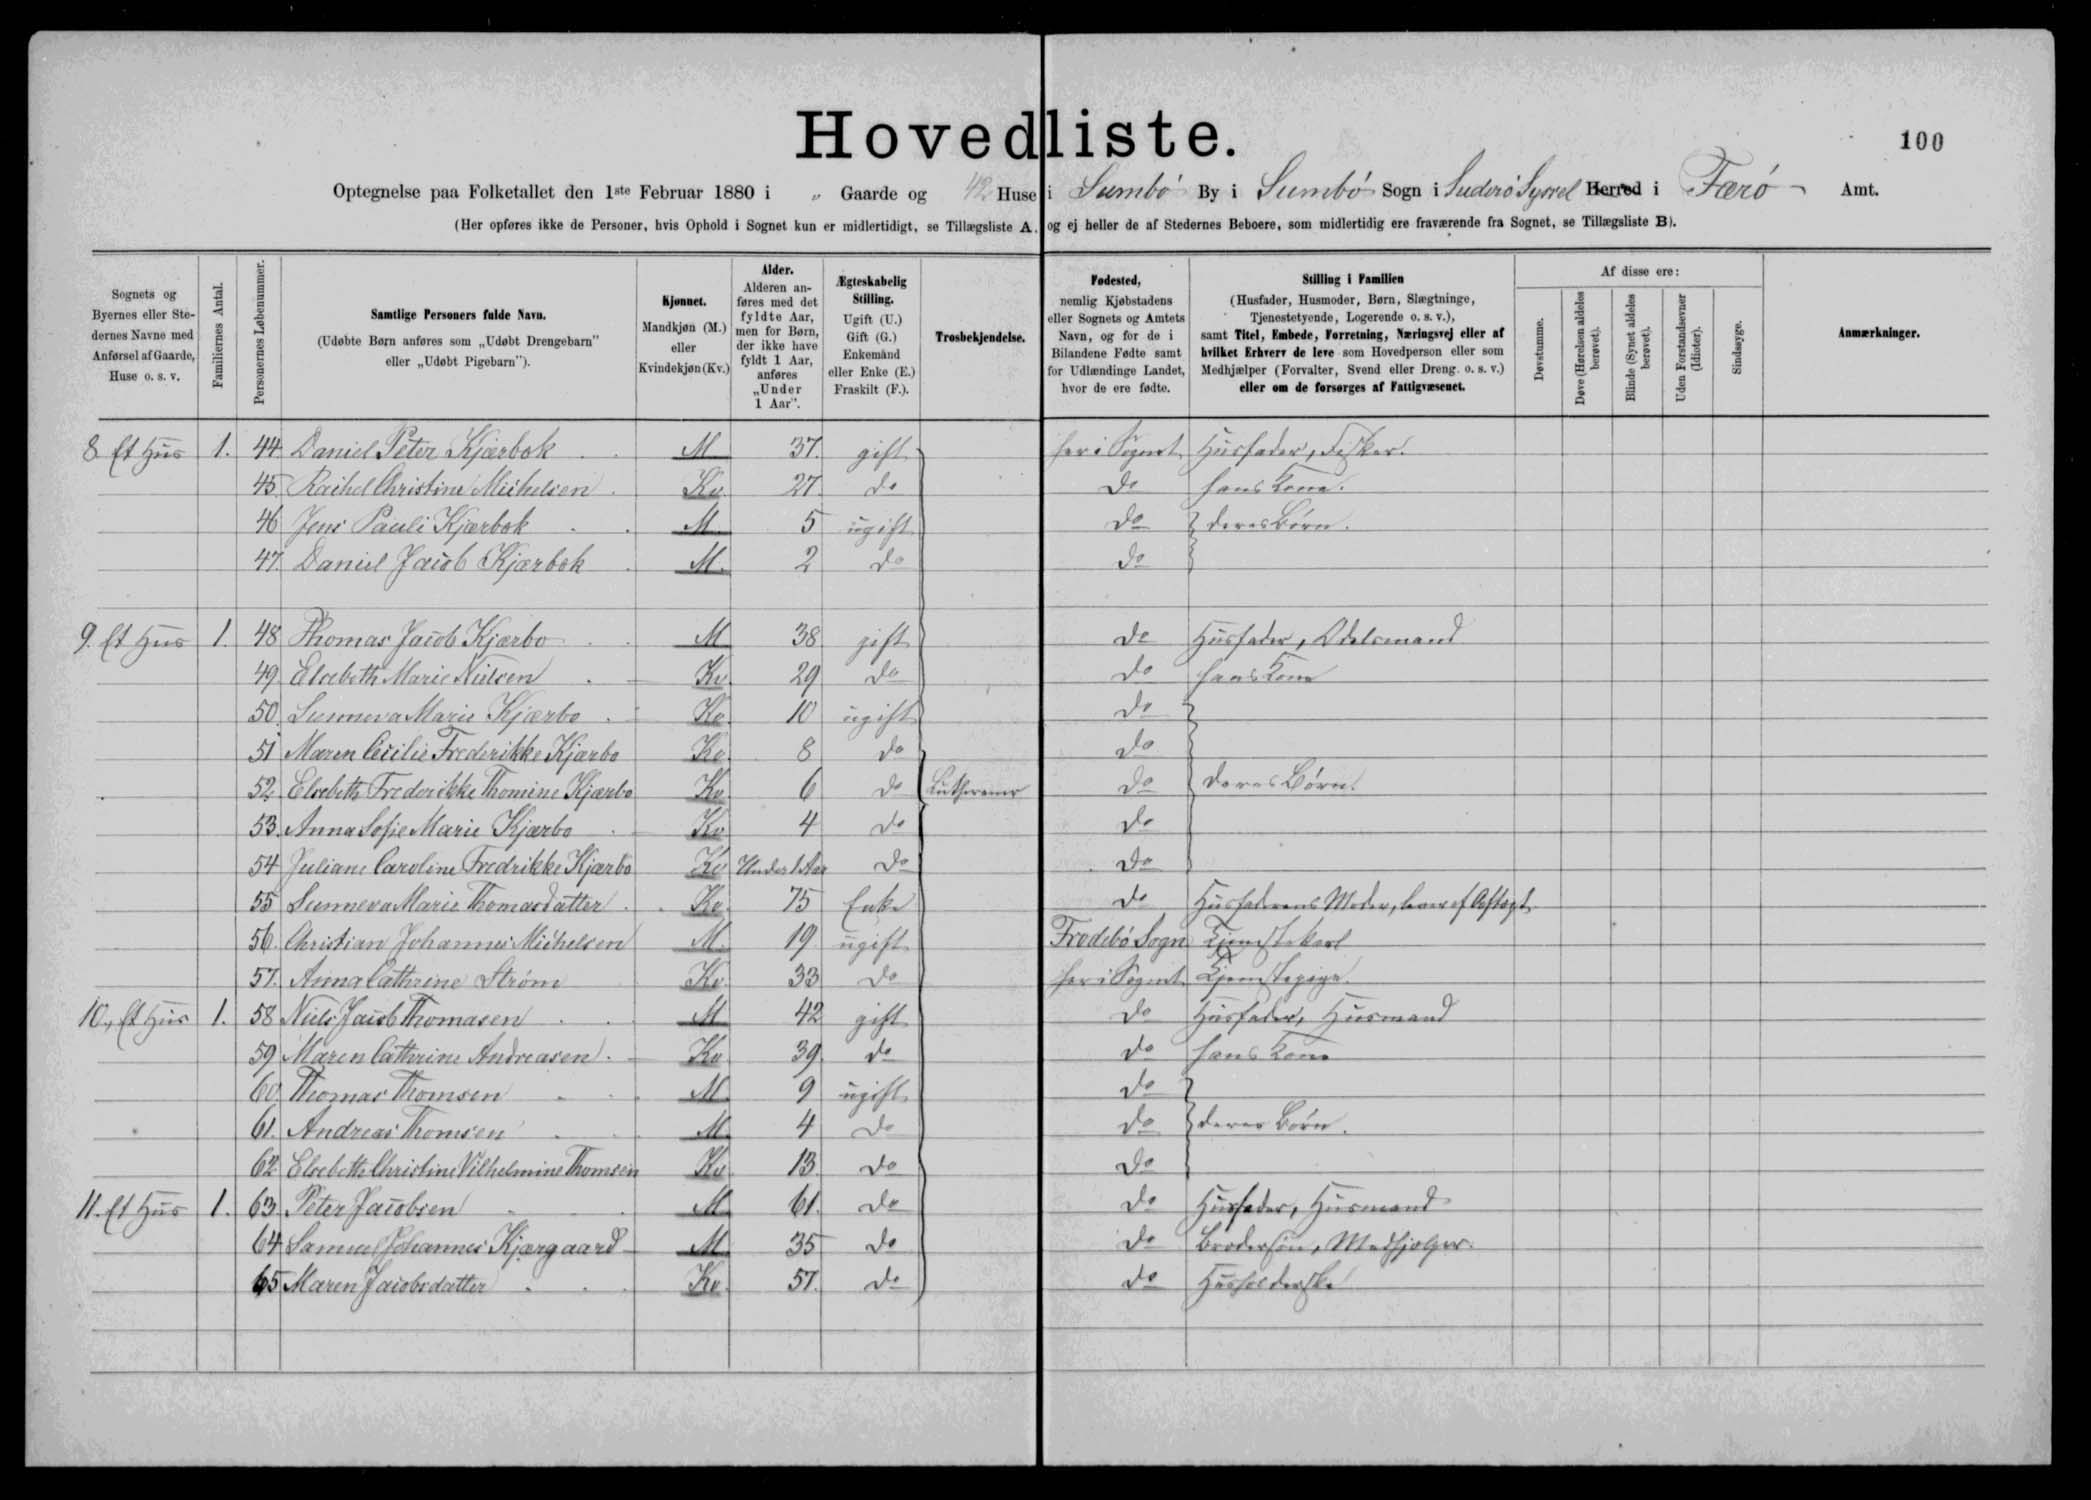 Hovedliste.
100
Optegnelse paa Folketallet den 1ste Februar 1880 i „ Gaarde og 42 Huse i Sumbö By i Sumbö Sogn i Suderö Syssel Herred i Færö Amt.
(Her opføres ikke de Personer, hvis Ophold i Sognet kun er midlertidigt, se Tillægsliste A, og ej heller de af Stedernes Beboere, som midlertidig ere fraværende fra Sognet, se Tillægsliste B).
Sognets og Byernes eller Stedernes Navne med Anførsel af Gaarde, Huse o. s. v.
Familiernes Antal.
Personernes Løbenummer.
Samtlige Personers fulde Navn.
(Udøbte Børn anføres som „Udøbt Drengebarn" eller „Udøbt Pigebarn").
Kjønnet.
Mandkjøn (M.) eller Kvindekjøn (Kv.)
Alder.
Alderen anføres med det fyldte Aar, men for Børn, der ikke have fyldt 1 Aar, anføres „Under 1 Aar".
Ægteskabelig Stilling.
Ugift (U.) Gift (G.) Enkemand eller Enke (E.) Fraskilt (F.).
Trosbekjendelse.
Fødested,
nemlig Kjøbstadens eller Sognets og Amtets Navn, og for de i Bilandene Fødte samt for Udlændinge Landet, hvor de ere fødte.
Stilling i Familien
(Husfader, Husmoder, Børn, Slægtninge, Tjenestetyende, Logerende o. s. v.),
samt Titel, Embede, Forretning, Næringsvej eller af hvilket Erhverv de leve som Hovedperson eller som Medhjælper (Forvalter, Svend eller Dreng. o. s. v.) eller om de forsørges af Fattigvæsenet.
Af disse ere:
Døvstumme.
Døve (Hørelsen aldeles berøvet).
Blinde (Synet aldeles berøvet).
Uden Forstandsevner (Idioter).
Sindssyge.
Anmærkninger.
8 Et Hus 1. 44 Daniel Peter Kjærbok M 37. gift her i Sognet Husfader, Fisker.
45. Rachel Christine Michelsen Kv. 27. do do hans Kone.
46 Jens Pauli Kjærbok M. 5 ugift do deres Børn.
47. Daniel Jacob Kjærbok M. 2 do do
9. Et Hus 1. 48 Thomas Jacob Kjærbo M 38 gift do Husfader, Odelsmand
49 Elsebeth Marie Nielsen Kv 29 do do hans Kone
50. Sunneva Marie Kjærbo Kv. 10 ugift do
51 Maren Cecilie Frederikke Kjærbo Kv. 8 do do
52, Elsebeth Frederikke Thomine Kjærbo Kv. 6 do Lutheraner do deres Børn.
53. Anna Sofie Marie Kjærbo Kv 4 do do
54 Juliane Caroline Fredrikke Kjærbo Kv Under 1 Aar do do
55 Sunneva Marie Thomasdatter Kv. 75 Enke do Husfaderens Moder, lever af Aftægt
56. Christian Johannes Michelsen M. 19 ugift Frodebö Sogn Tjenestekarl
57. Anna Cathrine Strøm Kv. 33 do her i Sognet Tjenestepige.
10., Et Hus 1. 58 Niels Jacob Thomasen M 42 gift do Husfader, Husmand
59 Maren Cathrine Andreasen Kv. 39. do do hans Kone
60 Thomas Thomsen M. 9 ugift do
61. Andreas Thomsen M. 4 do do deres Børn.
62 Elsebeth Christine Vilhelmine Thomsen Kv 13. do do
11. Et Hus 1. 63 Peter Jacobsen M 61. do do Husfader, Husmand
64 Samuel Johannes Kjærgaard M 35 do do Brodersön, Medhjælper.
65 Maren Jacobsdatter Kv. 57. do do Husholderske